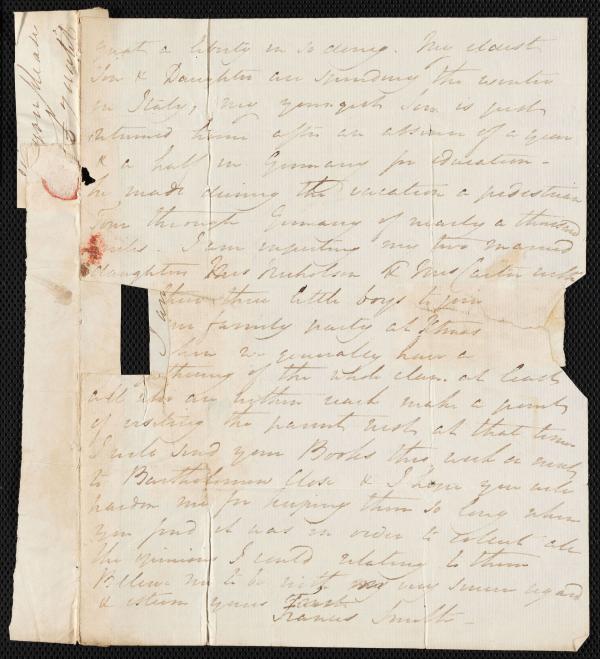 great a liberty in so doing. My eldest
Son & Daughter are spending the winter
in Italy, my youngest Son is just
returned home after an absence of a year
& a half in Germany for education -
he made during the vacation a pedestrian
Tour through Germany of nearly a thousand
miles. I am expecting my two married
daughters Mrs Nicholson & Mrs Carter with
their three little boys to join
our family party at Xmas
when we generally have a
gathering of the whole clan. at least
all who are within reach make a point
of visiting the parent nest at that time
I will send your Books this week or next
to Bartholomew Close & I hope you will
pardon me for keeping them so long when
you find it was in order to collect all
the opinions I could relating to them
Believe me to be with very sincere regard
& esteem yours
Francis Smith -